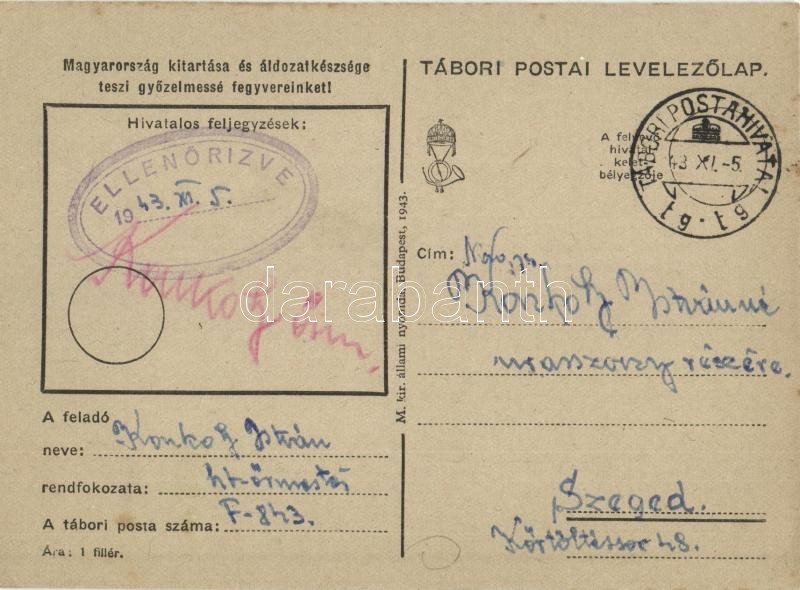 Magyarország kitartása és áldozatkészsége
teszi győzelmessé fegyvereinket!
Hivatalos feljegyzések:
ELLENŐRIZVE
1943. XI. 5.
Konkoly őrm.
A feladó
neve: Konkoly István
rendfokozata: ht. őrmester
A tábori posta száma: F-843.
Ára: 1 fillér.
M. kir. állami nyomda, Budapest, 1943.
TÁBORI POSTAI LEVELEZŐLAP.
A felvevő
hivatal
kelet-
bélyegzője
TÁBORI POSTAHIVATAL
43 XI.-5.
Cím:
Konkoly Istvánné
uraszony részére.
Szeged.
Körtöltéssor 48.
darabanth